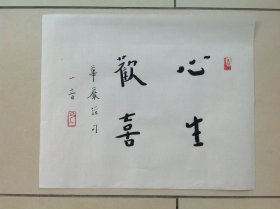 心生
歡喜
華嚴經句
一音